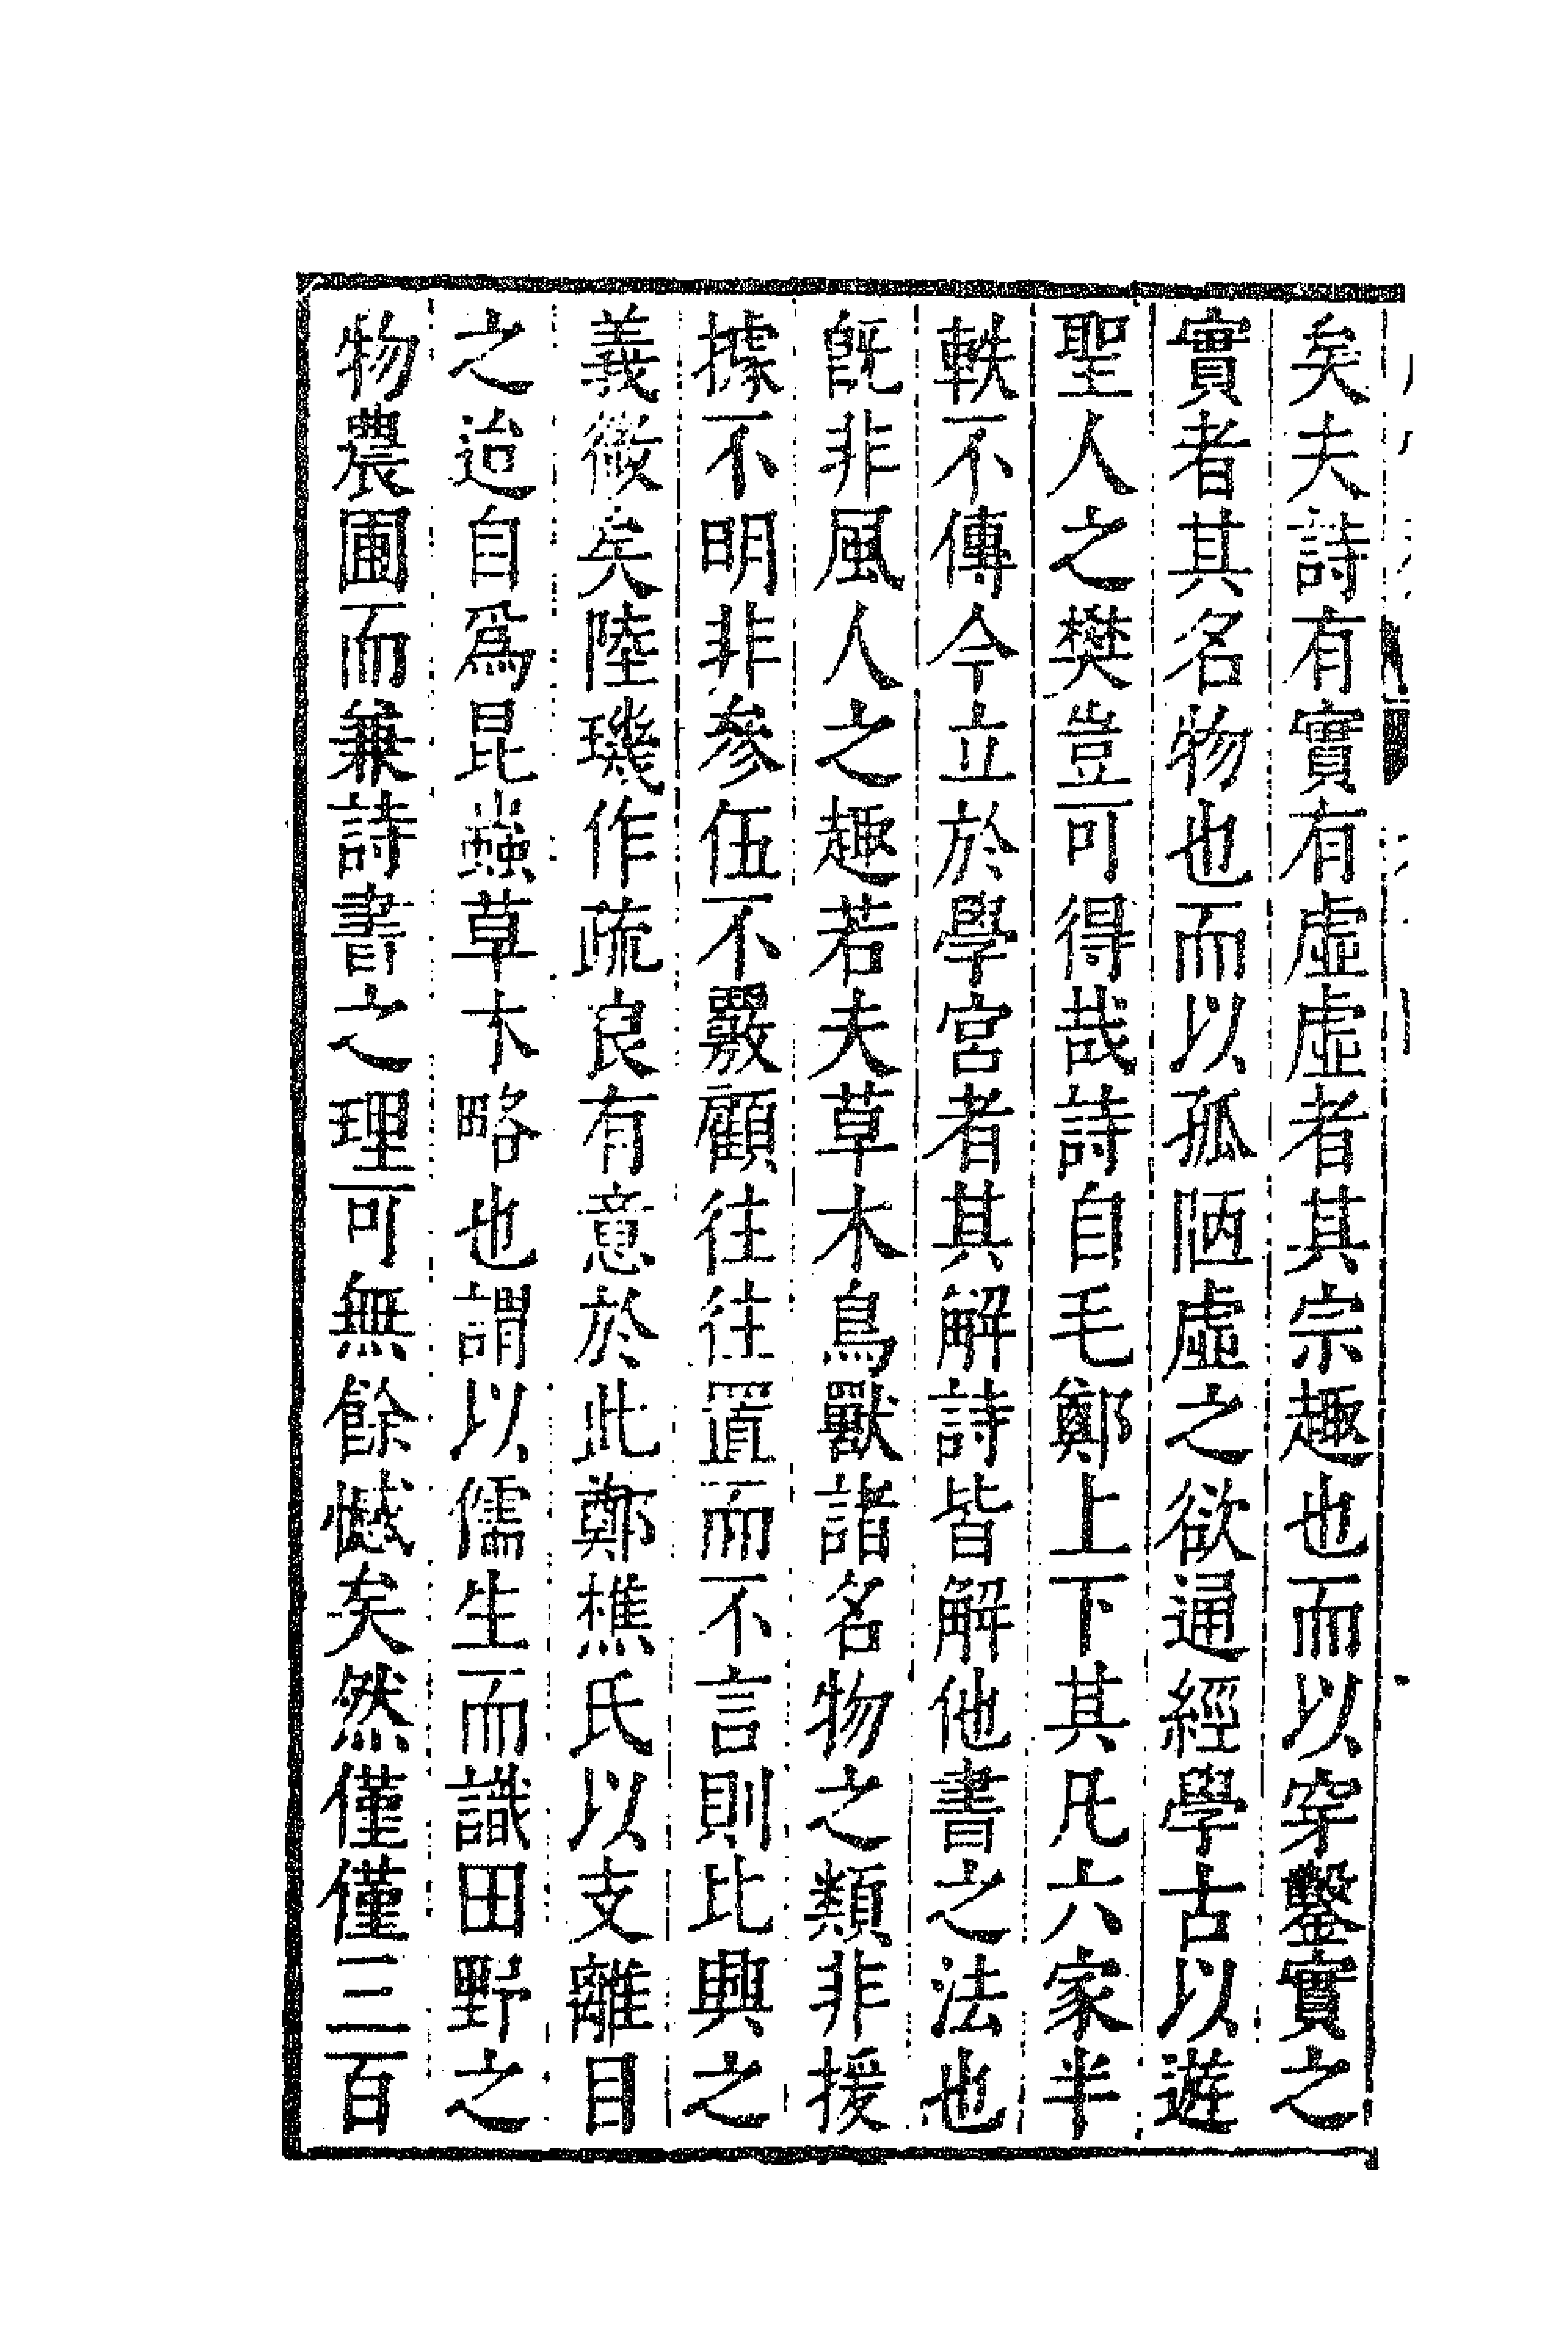 矣夫詩有實有虛虛者其宗趣也而以穿鑿實之
實者其名物也而以孤陋虛之欲通經學古以遊
聖人之樊豈可得哉詩自毛鄭上下其凡六家半
軼不傳今立於學宮者其解詩皆解他書之法也
旣非風人之趣若夫草木鳥獸諸名物之類非援
據不明非參伍不覈顧往往置而不言則比興之
義微矣陸璣作疏良有意於此鄭樵氏以支離目
之迨自爲昆蟲草木略也謂以儒生而識田野之
物農圃而兼詩書之理可無餘憾矣然僅僅三百